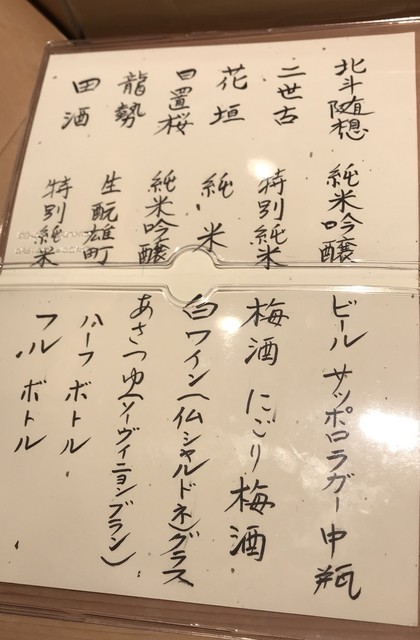 北斗随想 純米吟醸
二世古 特別純米
花垣 純米
日置桜 純米吟醸
龍勢 生酛雄町
田酒 特別純米
ビール サッポロラガー中瓶
梅酒 にごり梅酒
白ワイン(仏シャルドネ)グラス
あさつゆ(ソーヴィニヨンブラン)
ハーフボトル
フルボトル